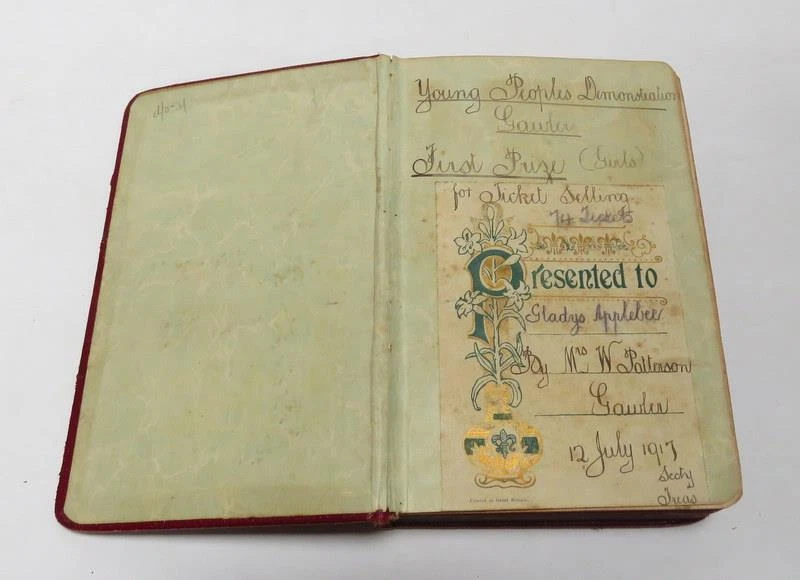 Young Peoples Demonstration
Gawler
First Prize (Girls)
for Ticket Selling
74 Tickets
Presented to
Gladys Applebee
By Mrs W Patterson
Gawler
12 July 1917
Secty
Treas
Printed in Great Britain.